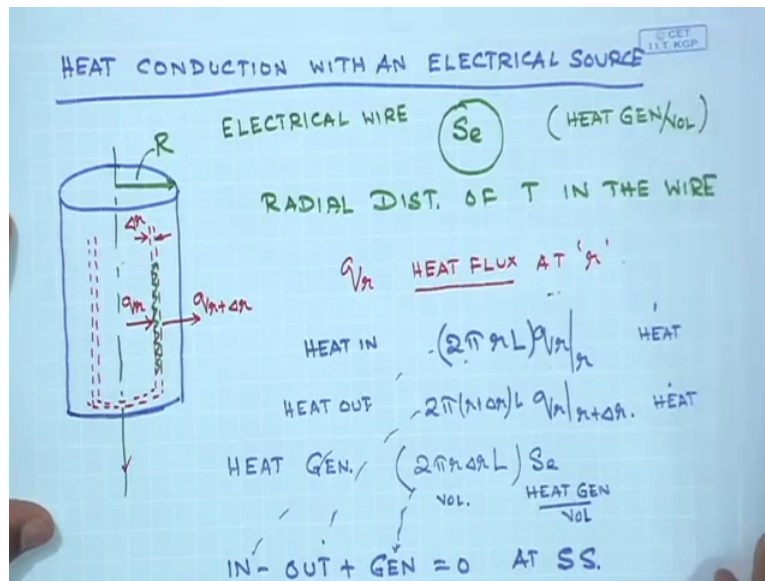 © CET
I.I.T. KGP
HEAT CONDUCTION WITH AN ELECTRICAL SOURCE
ELECTRICAL WIRE Se (HEAT GEN/VOL)
R
RADIAL DIST. OF T IN THE WIRE
Δr
qr HEAT FLUX AT 'r'.
qr qr+Δr
HEAT IN (2π r L) qr|r HEAT
HEAT OUT 2π(r+Δr)L qr|r+Δr. HEAT
HEAT GEN. (2π r Δr L) Se
VOL. HEAT GEN
VOL
IN - OUT + GEN = 0 AT SS.